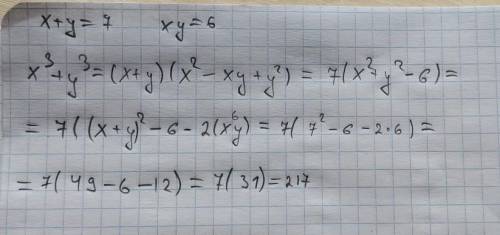 x+y=7    xy=6
x³+y³=(x+y)(x²-xy+y²)=7(x²+y²-6)=
=7((x+y)²-6-2(xy⁶)=7(7²-6-2·6)=
=7(49-6-12)=7(31)=217